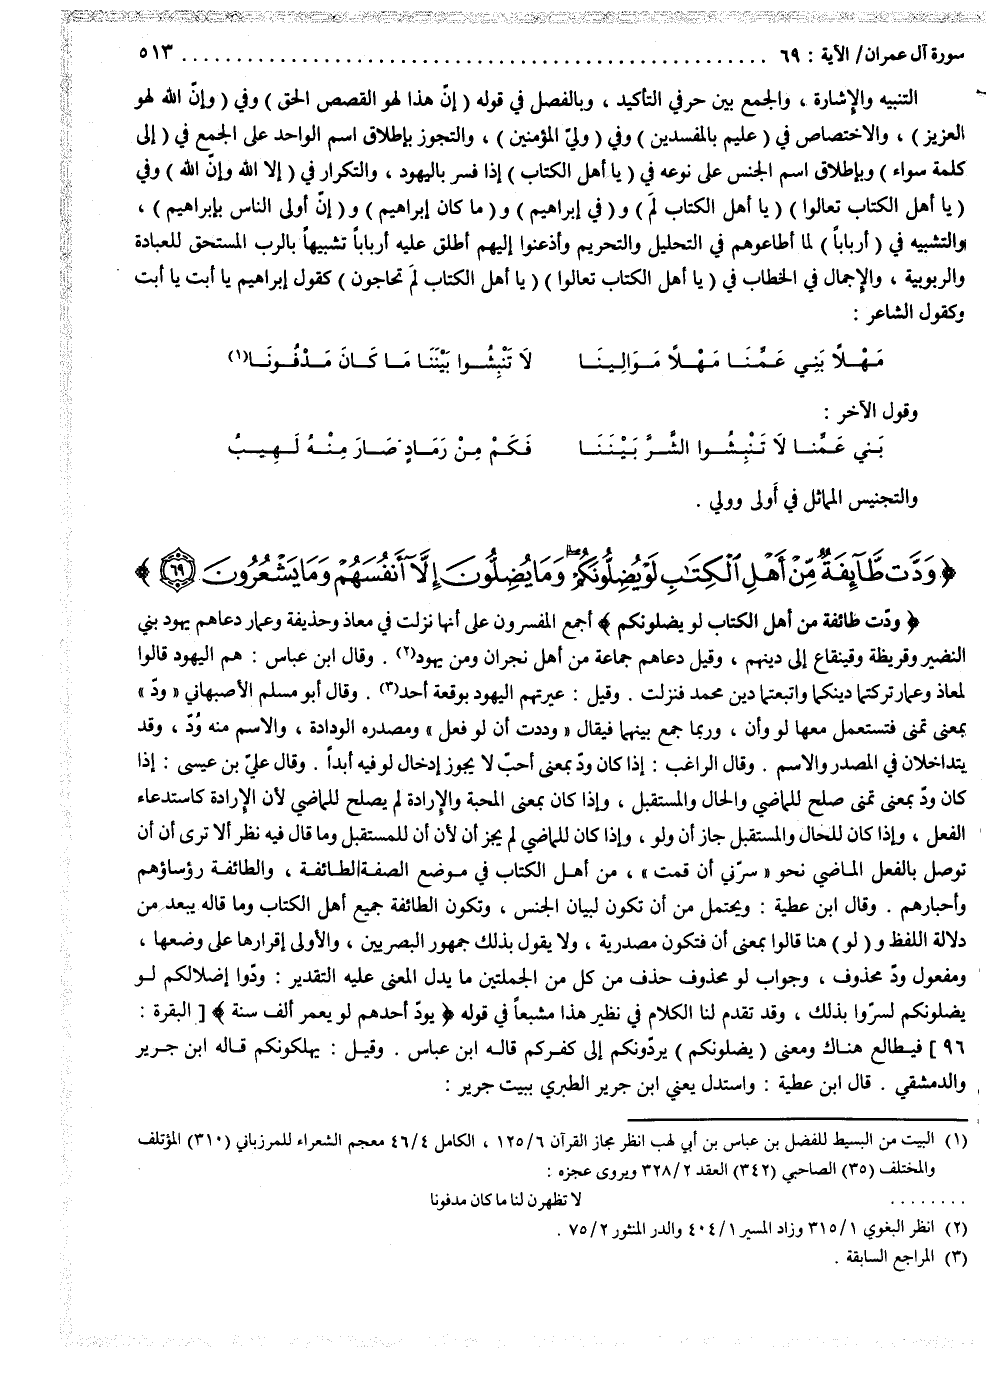 سورة آل عمران/ الآية : ٦٩ . . . . . . . . . . . . . . . . . . . . . . . . . . . . . . . . . . . . . . . . . . . . . . . . . . . . . ٥١٣
التنبيه والإشارة ، والجمع بين حرفي التأكيد ، وبالفصل في قوله ( إنّ هذا لهو القصص الحق ) وفي ( وإنّ الله لهو
العزيز ) ، والاختصاص في ( عليم بالمفسدين ) وفي ( وليّ المؤمنين ) ، والتجوز بإطلاق اسم الواحد على الجمع في ( إلى
كلمة سواء ) وبإطلاق اسم الجنس على نوعه في ( يا أهل الكتاب ) إذا فسر باليهود ، والتكرار في ( إلا الله وإنّ الله ) وفي
( يا أهل الكتاب تعالوا ) ( يا أهل الكتاب لمَ ) و ( في إبراهيم ) و ( ما كان إبراهيم ) و ( إنّ أولى الناس بإبراهيم ) ،
والتشبيه في ( أرباباً ) لما أطاعوهم في التحليل والتحريم وأذعنوا إليهم أطلق عليه أرباباً تشبيهاً بالرب المستحق للعبادة
والربوبية ، والإجمال في الخطاب في ( يا أهل الكتاب تعالوا ) ( يا أهل الكتاب لمَ تحاجون ) كقول إبراهيم يا أبت يا أبت
وكقول الشاعر :
مَهْلاً بَنِي عَمِّنَا مَهْلاً مَوَالِينَا لَا تَنْبِشُوا بَيْنَنَا مَا كَانَ مَدْفُونَا(١)
وقول الآخر :
بَنِي عَمِّنَا لَا تَنْبِشُوا الشَّرَّ بَيْنَنَا فَكَمْ مِنْ رَمَادٍ صَارَ مِنْهُ لَهِيبُ
والتجنيس المماثل في أَولى وولي .
﴿ وَدَّت طَّآئِفَةٌ مِّنْ أَهْلِ ٱلْكِتَٰبِ لَوْ يُضِلُّونَكُمْ وَمَا يُضِلُّونَ إِلَّآ أَنفُسَهُمْ وَمَا يَشْعُرُونَ ٦٩ ﴾
﴿ ودّت طائفة من أهل الكتاب لو يضلونكم ﴾ أجمع المفسرون على أنها نزلت في معاذ وحذيفة وعمار دعاهم يهود بني
النضير وقريظة وقينقاع إلى دينهم ، وقيل دعاهم جماعة من أهل نجران ومن يهود(٢) . وقال ابن عباس : هم اليهود قالوا
لمعاذ وعمار تركتما دينكما واتبعتما دين محمد فنزلت . وقيل : عيرتهم اليهود بوقعة أحد(٣) . وقال أبو مسلم الأصبهاني « ودّ »
بمعنى تمنى فتستعمل معها لو وأن ، وربما جمع بينهما فيقال « وددت أن لو فعل » ومصدره الودادة ، والاسم منه وُدّ ، وقد
يتداخلان في المصدر والاسم . وقال الراغب : إذا كان ودّ بمعنى أحبّ لا يجوز إدخال لو فيه أبداً . وقال عليّ بن عيسى : إذا
كان ودّ بمعنى تمنى صلح للماضي والحال والمستقبل ، وإذا كان بمعنى المحبة والإرادة لم يصلح للماضي لأن الإرادة كاستدعاء
الفعل ، وإذا كان للحال والمستقبل جاز أن ولو ، وإذا كان للماضي لم يجز أن لأن أن للمستقبل وما قال فيه نظر ألا ترى أن أن
توصل بالفعل الماضي نحو « سرّني أن قمت » ، من أهل الكتاب في موضع الصفة الطائفة ، والطائفة رؤساؤهم
وأحبارهم . وقال ابن عطية : ويحتمل من أن تكون لبيان الجنس ، وتكون الطائفة جميع أهل الكتاب وما قاله يبعد من
دلالة اللفظ و ( لو ) هنا قالوا بمعنى أن فتكون مصدرية ، ولا يقول بذلك جمهور البصريين ، والأولى إقرارها على وضعها ،
ومفعول ودّ محذوف ، وجواب لو محذوف حذف من كل من الجملتين ما يدل المعنى عليه التقدير : ودّوا إضلالكم لو
يضلونكم لسرّوا بذلك ، وقد تقدم لنا الكلام في نظير هذا مشبعاً في قوله ﴿ يودّ أحدهم لو يعمر ألف سنة ﴾ [ البقرة :
٩٦ ] فيطالع هناك ومعنى ( يضلونكم ) يردّونكم إلى كفركم قاله ابن عباس . وقيل : يهلكونكم قاله ابن جرير
والدمشقي . قال ابن عطية : واستدل يعني ابن جرير الطبري ببيت جرير :
(١) البيت من البسيط للفضل بن عباس بن أبي لهب انظر مجاز القرآن ١٢٥/٦ ، الكامل ٤٦/٤ معجم الشعراء للمرزباني (٣١٠) المؤتلف
والمختلف (٣٥) الصاحبي (٣٤٢) العقد ٣٢٨/٢ ويروى عجزه :
. . . . . . . . لا تظهرن لنا ما كان مدفونا
(٢) انظر البغوي ٣١٥/١ وزاد المسير ٤٠٤/١ والدر المنثور ٧٥/٢ .
(٣) المراجع السابقة .